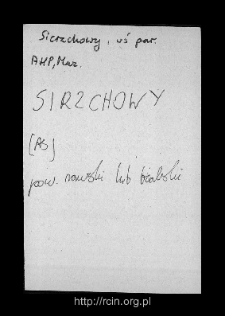 Sierzchowy, wś par.
AHP, Maz.
SIRZCHOWY
[AS]
pow. rawski lub bialski
http://rcin.org.pl